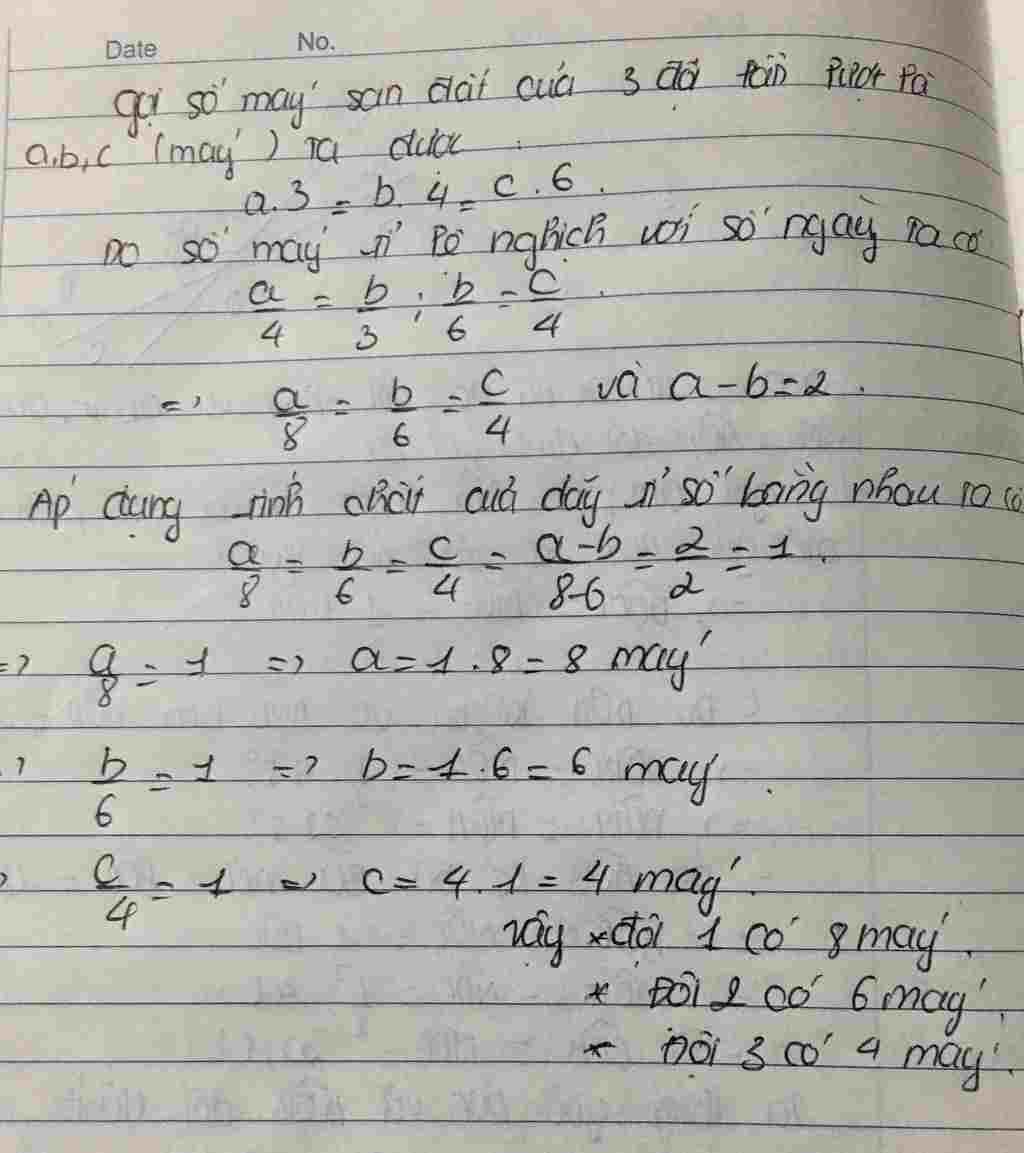 Date No.
Gọi số máy san đất của 3 đội lần lượt là
a,b,c (máy) ta được :
a.3 = b.4 = c.6.
Do số máy tỉ lệ nghịch với số ngày ta có
a/4 = b/3 ; b/6 = c/4.
=> a/8 = b/6 = c/4 và a-b=2.
Áp dụng tính chất của dãy tỉ số bằng nhau ta có
a/8 = b/6 = c/4 = a-b/8-6 = 2/2 = 1.
=> a/8 = 1 => a=1.8=8 máy
=> b/6 = 1 => b=1.6=6 máy.
=> c/4 = 1 => c=4.1=4 máy.
Vậy * đội 1 có 8 máy.
* Đội 2 có 6 máy.
* Đội 3 có 4 máy.